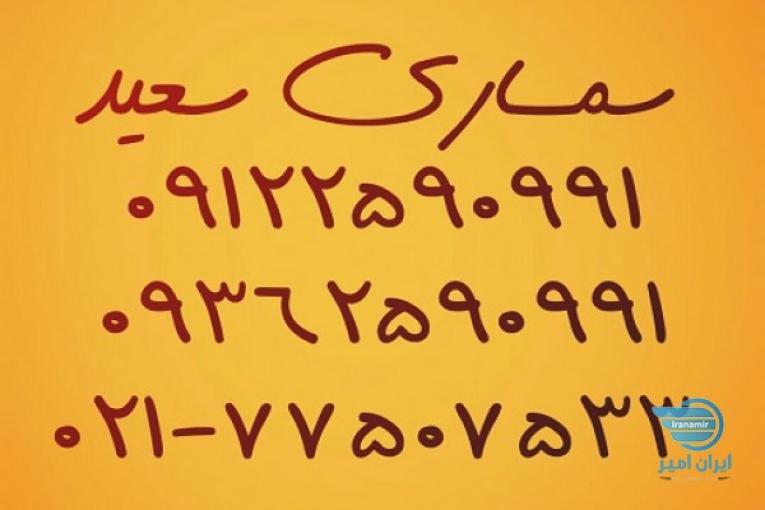 سمساری سعید
۰۹۱۲۲۵۹۰۹۹۱
۰۹۳۶۲۵۹۰۹۹۱
۰۲۱-۷۷۵۰۷۵۳۳
Iranamir
ایران امیر